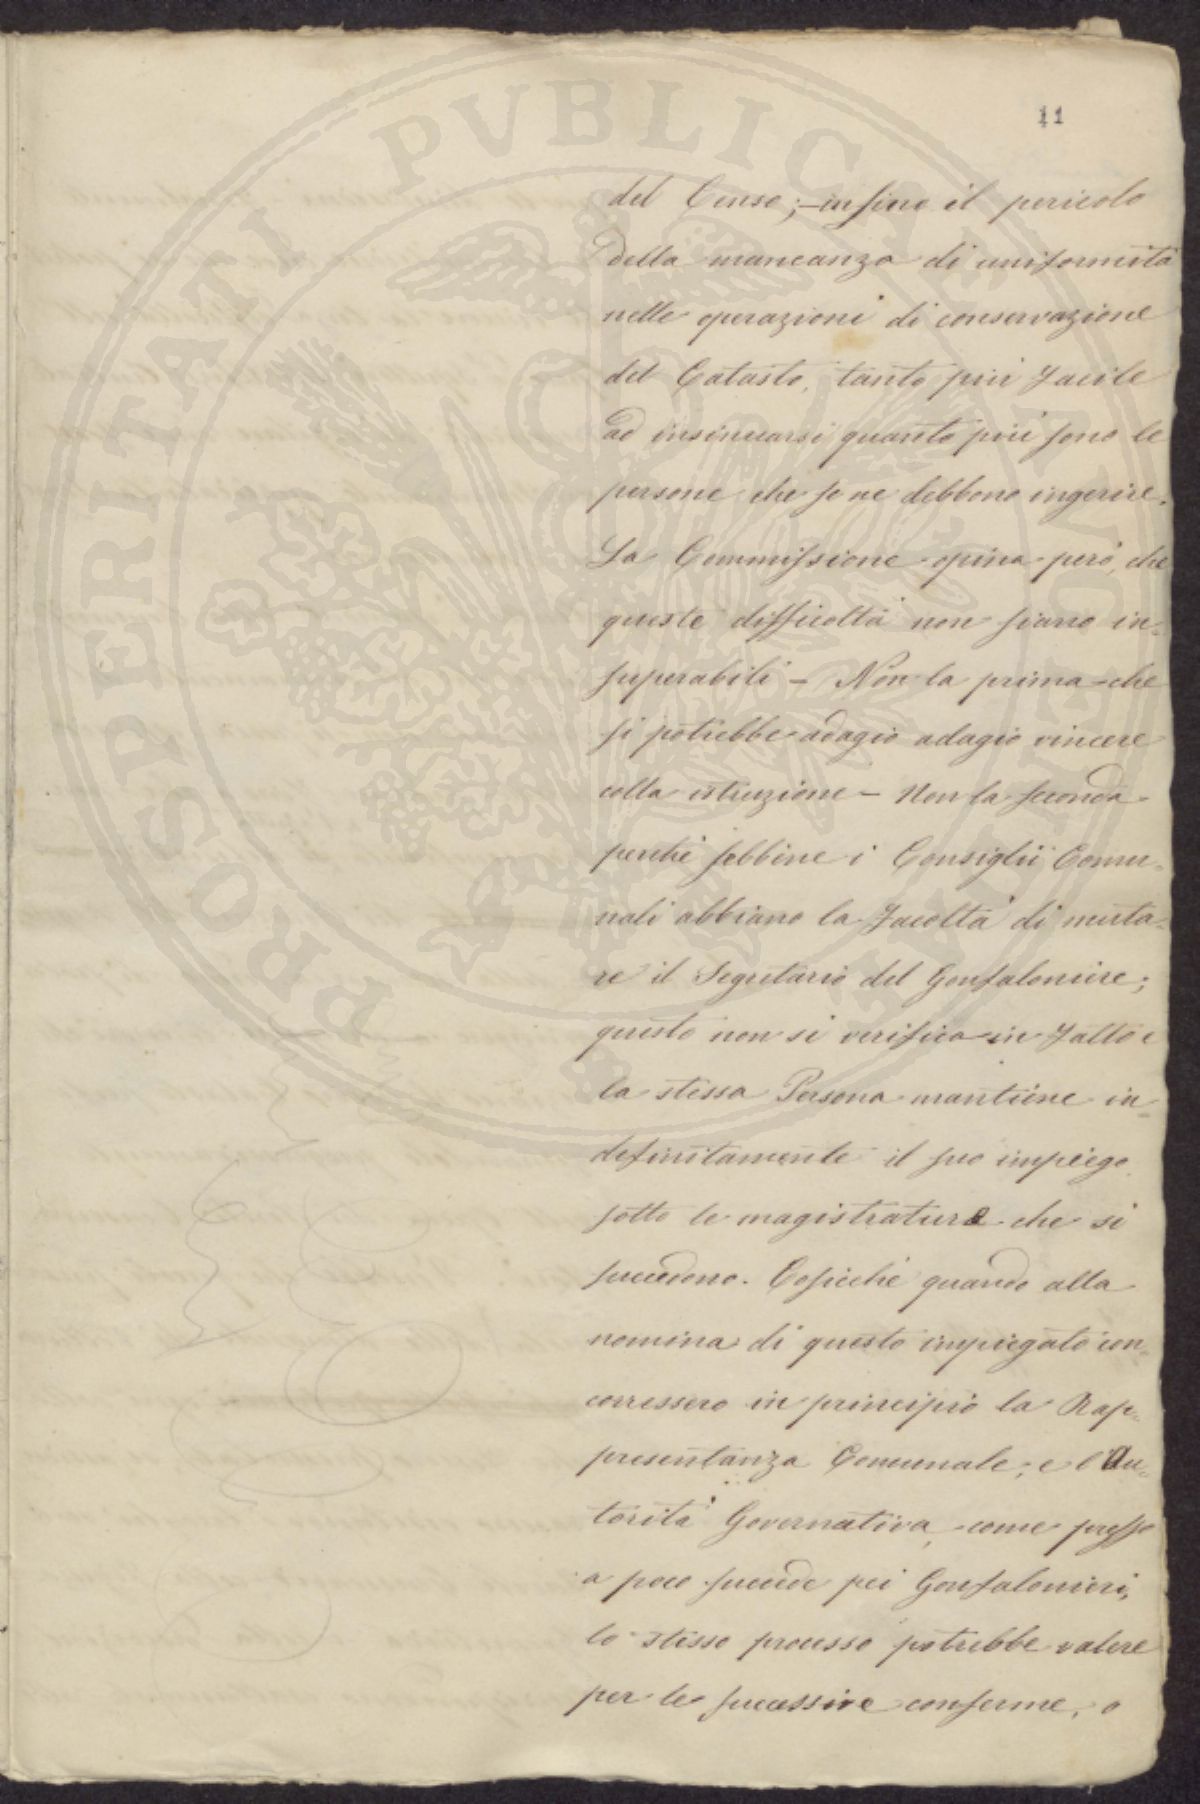 11
del Censo; - infine il pericolo
della mancanza di uniformità
nelle operazioni di conservazione
del Catasto, tanto più facile
ad insinuarsi quanto più sono le
persone che se ne debbono ingerire.
La Commissione opina però, che
queste difficoltà non siano in=
superabili - Non la prima che
si potrebbe adagio adagio vincere
colla istruzione - Non la seconda
perchè sebbene i Consiglii Comu=
nali abbiano la facoltà di muta=
re il Segretario del Gonfaloniere;
questo non si verifica in fatto e
la stessa Persona mantiene in=
definitamente il suo impiego
sotto le magistrature che si
succedono. Cosicchè quando alla
nomina di questo impiegato con=
corressero in principio la Rap=
presentanza Comunale, e l'Au=
torità Governativa, come presso
a poco succede pei Gonfalonieri,
lo stesso processo potrebbe valere
per le successive conferme, o
PROSPERITATI PVBLICAE AVGENDAE